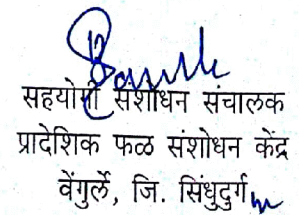 सहयोगी संशोधन संचालक
प्रादेशिक फळ संशोधन केंद्र
वेंगुर्ले, जि. सिंधुदुर्ग